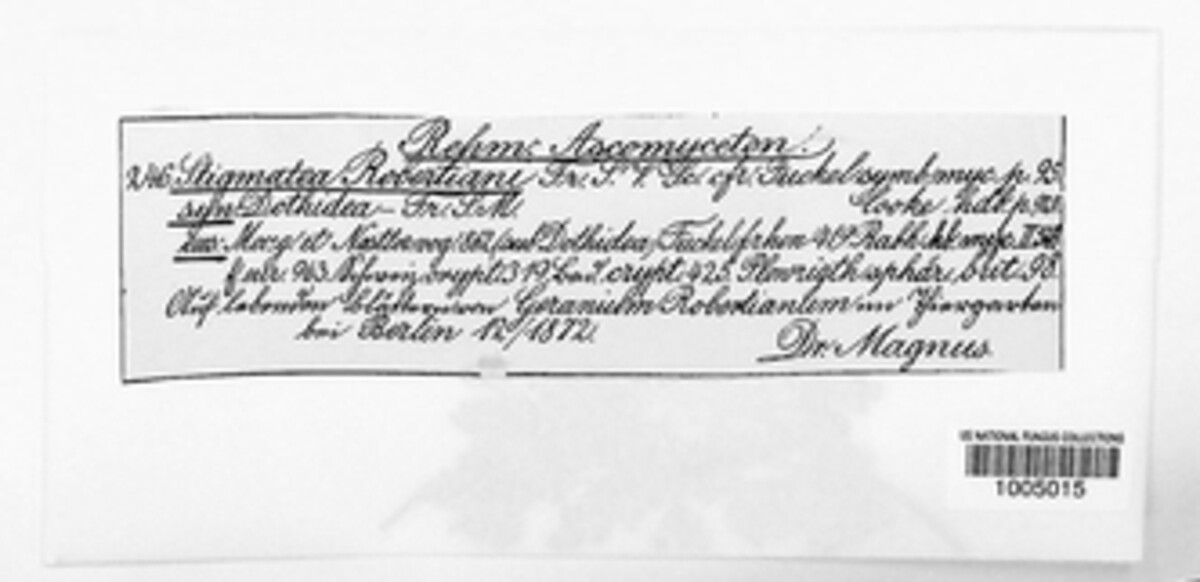 Rehm: Ascomyceten.
246 Stigmatea Robertiani Fr. S. V. Sc. cfr. Fuckel symb. myc. p. 95.
syn Dothidea – Fr. S. M. Cooke hdb. p.
Exs: Moug et Nestl. vog. (sub Dothidea) Fuckel f. rhen Rabh.
f. eur. 943. Schweiz. crypt. 319. crypt. 425. Plowrigth sphär. brit. 98.
Auf lebenden Blättern von Geranium Robertianum im Thiergarten
bei Berlin 12/1872.
Dr. Magnus.
US NATIONAL FUNGUS COLLECTIONS
1005015